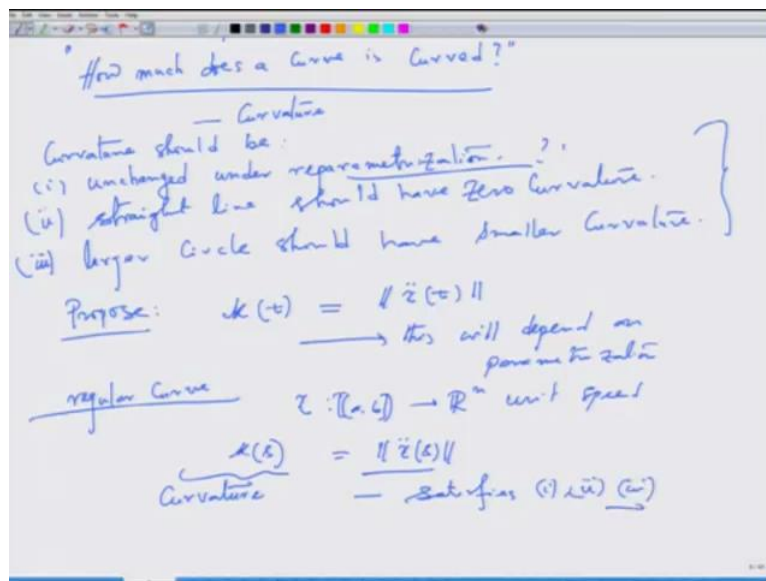 "How much does a Curve is Curved?"
— Curvature
Curvature should be:
(i) unchanged under reparametrization. ?
(ii) straight line should have zero Curvature.
(iii) larger Circle should have smaller Curvature.
Propose: k(t) = ‖r̈(t)‖
→ this will depend on
parametrization
regular Curve r : [a,b] → Rⁿ unit speed
k(s) = ‖r̈(s)‖
Curvature — satisfies (i) (ii) (iii)